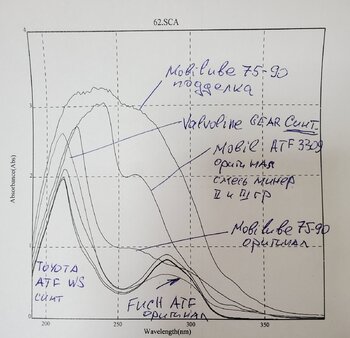 62.SCA
Mobilube 75-90
подделка
Valvoline GEAR Синт.
Mobil ATF 3309
оригинал
смесь минер
II и III гр
Mobilube 75-90
оригинал
TOYOTA
ATF WS
синт
FUCH ATF
оригинал
Absorbance(Abs)
4
3
2
1
0
200
250
300
350
Wavelength(nm)